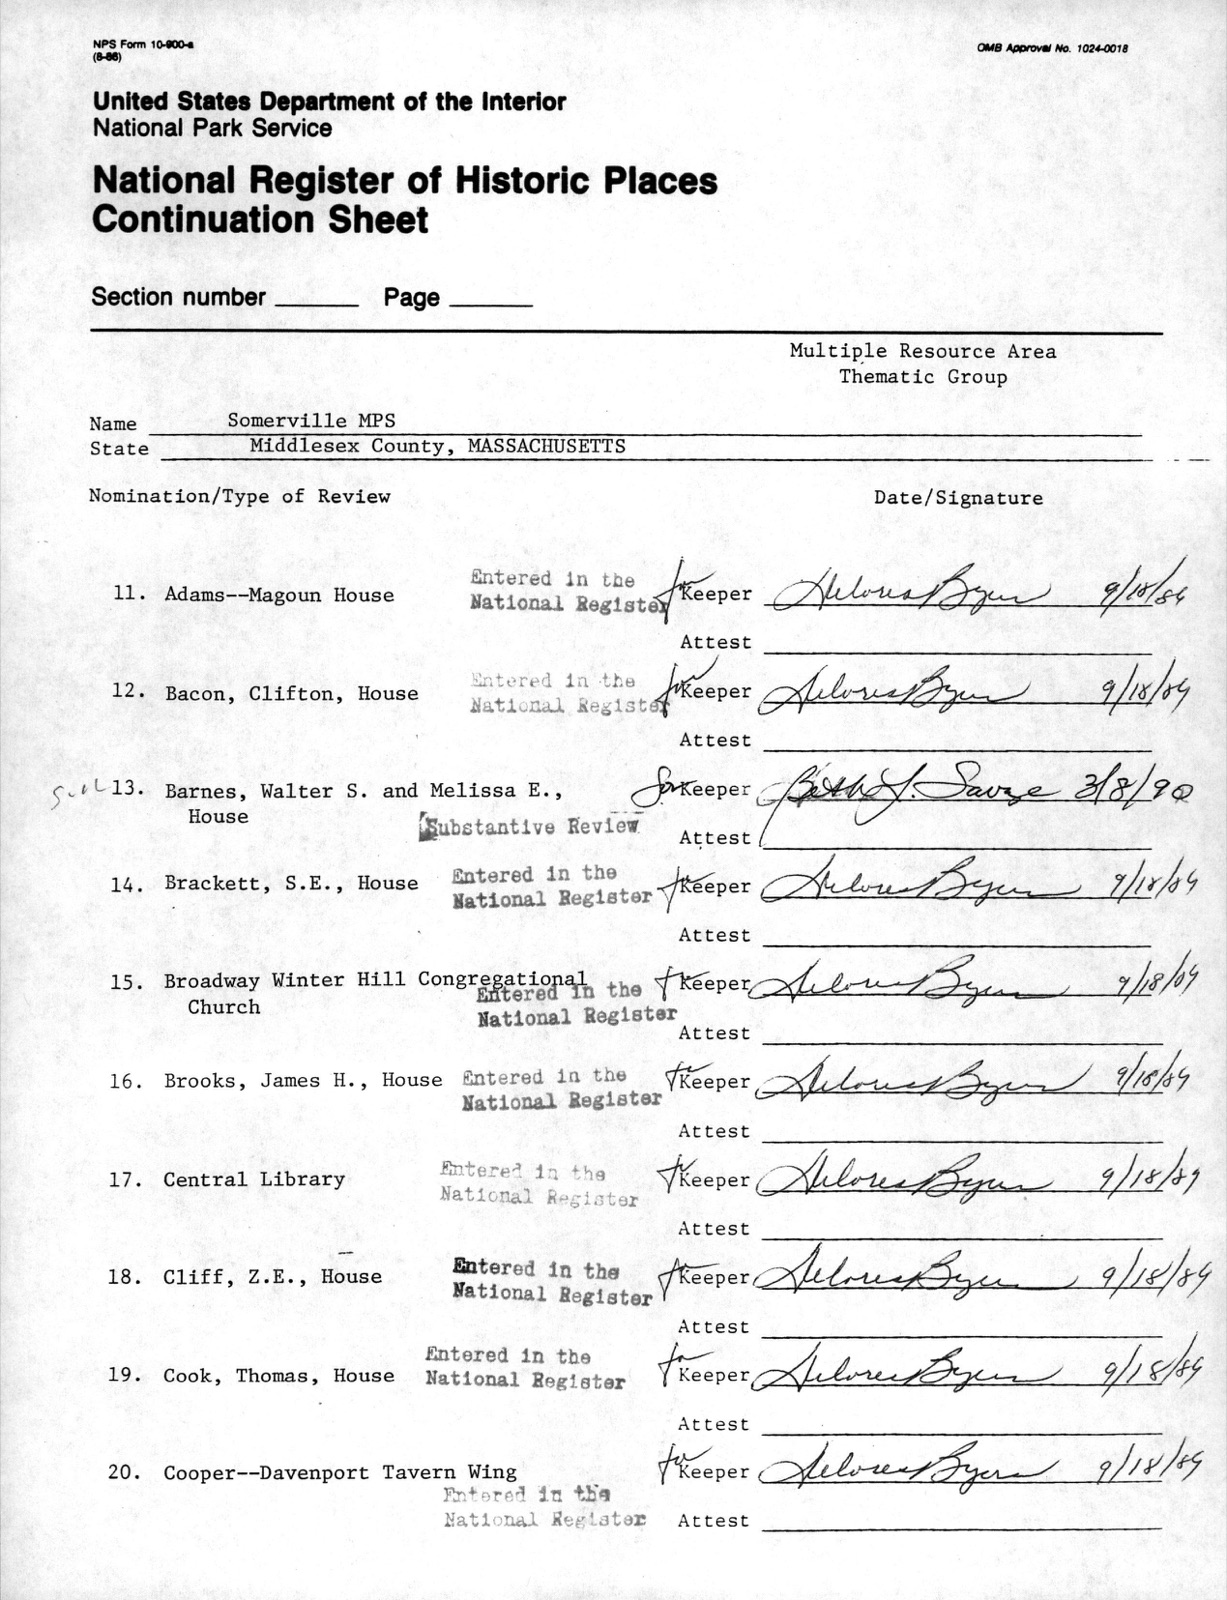 NPS Form 10-900-a
(8-86)
OMB Approval No. 1024-0018
United States Department of the Interior
National Park Service
National Register of Historic Places
Continuation Sheet
Section number ______ Page ______
Multiple Resource Area
Thematic Group
Name Somerville MPS
State Middlesex County, MASSACHUSETTS
Nomination/Type of Review Date/Signature
11. Adams--Magoun House Entered in the National Register for Keeper Delores Byers 9/18/89
Attest
12. Bacon, Clifton, House Entered in the National Register for Keeper Delores Byers 9/18/89
Attest
13. Barnes, Walter S. and Melissa E., for Keeper Beth L. Savage 3/8/90
House
Substantive Review
Attest
14. Brackett, S.E., House Entered in the National Register for Keeper Delores Byers 9/18/89
Attest
15. Broadway Winter Hill Congregational for Keeper Delores Byers 9/18/89
Church Entered in the National Register
Attest
16. Brooks, James H., House Entered in the National Register for Keeper Delores Byers 9/18/89
Attest
17. Central Library Entered in the National Register for Keeper Delores Byers 9/18/89
Attest
18. Cliff, Z.E., House Entered in the National Register for Keeper Delores Byers 9/18/89
Attest
19. Cook, Thomas, House Entered in the National Register for Keeper Delores Byers 9/18/89
Attest
20. Cooper--Davenport Tavern Wing for Keeper Delores Byers 9/18/89
Entered in the National Register
Attest